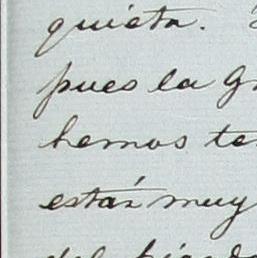 quieta.
pues la
hemos
están muy
del